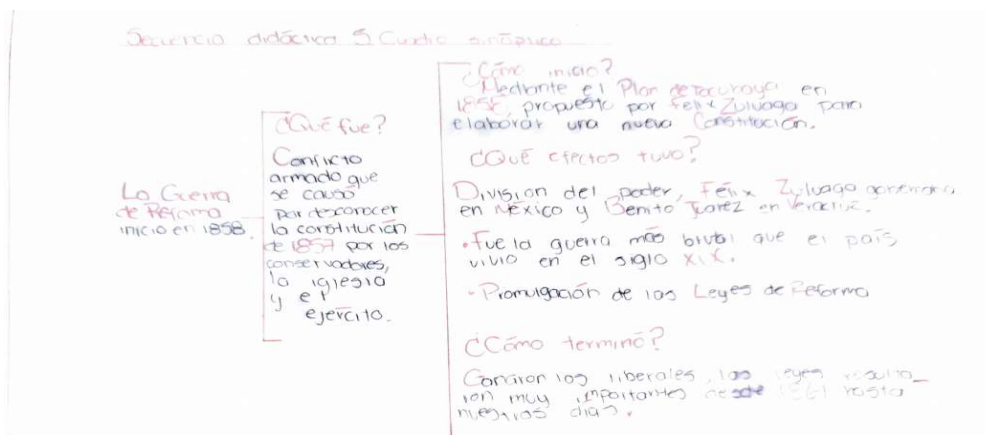 Secuencia didáctica 5 Cuadro sinóptico
La Guerra
de Reforma
inicio en 1858.
¿Qué fue?
Conflicto
armado que
se causó
por desconocer
la constitución
de 1857 por los
conservadores,
la iglesia
y el
ejército.
¿Cómo inicio?
Mediante el Plan de Tacubaya en
propuesto por Felix Zuluaga para
elaborar una nueva Constitución.
¿Qué efectos tuvo?
División del poder, Felix Zuluaga
en México y Benito Juarez en Veracruz.
• Fue la guerra más brutal que el país
vivio en el siglo XIX.
- Promulgación de las Leyes de Reforma
¿Cómo terminó?
Ganaron los liberales, las leyes resulta_
ron muy importantes desde 1861 hasta
nuestros dias.